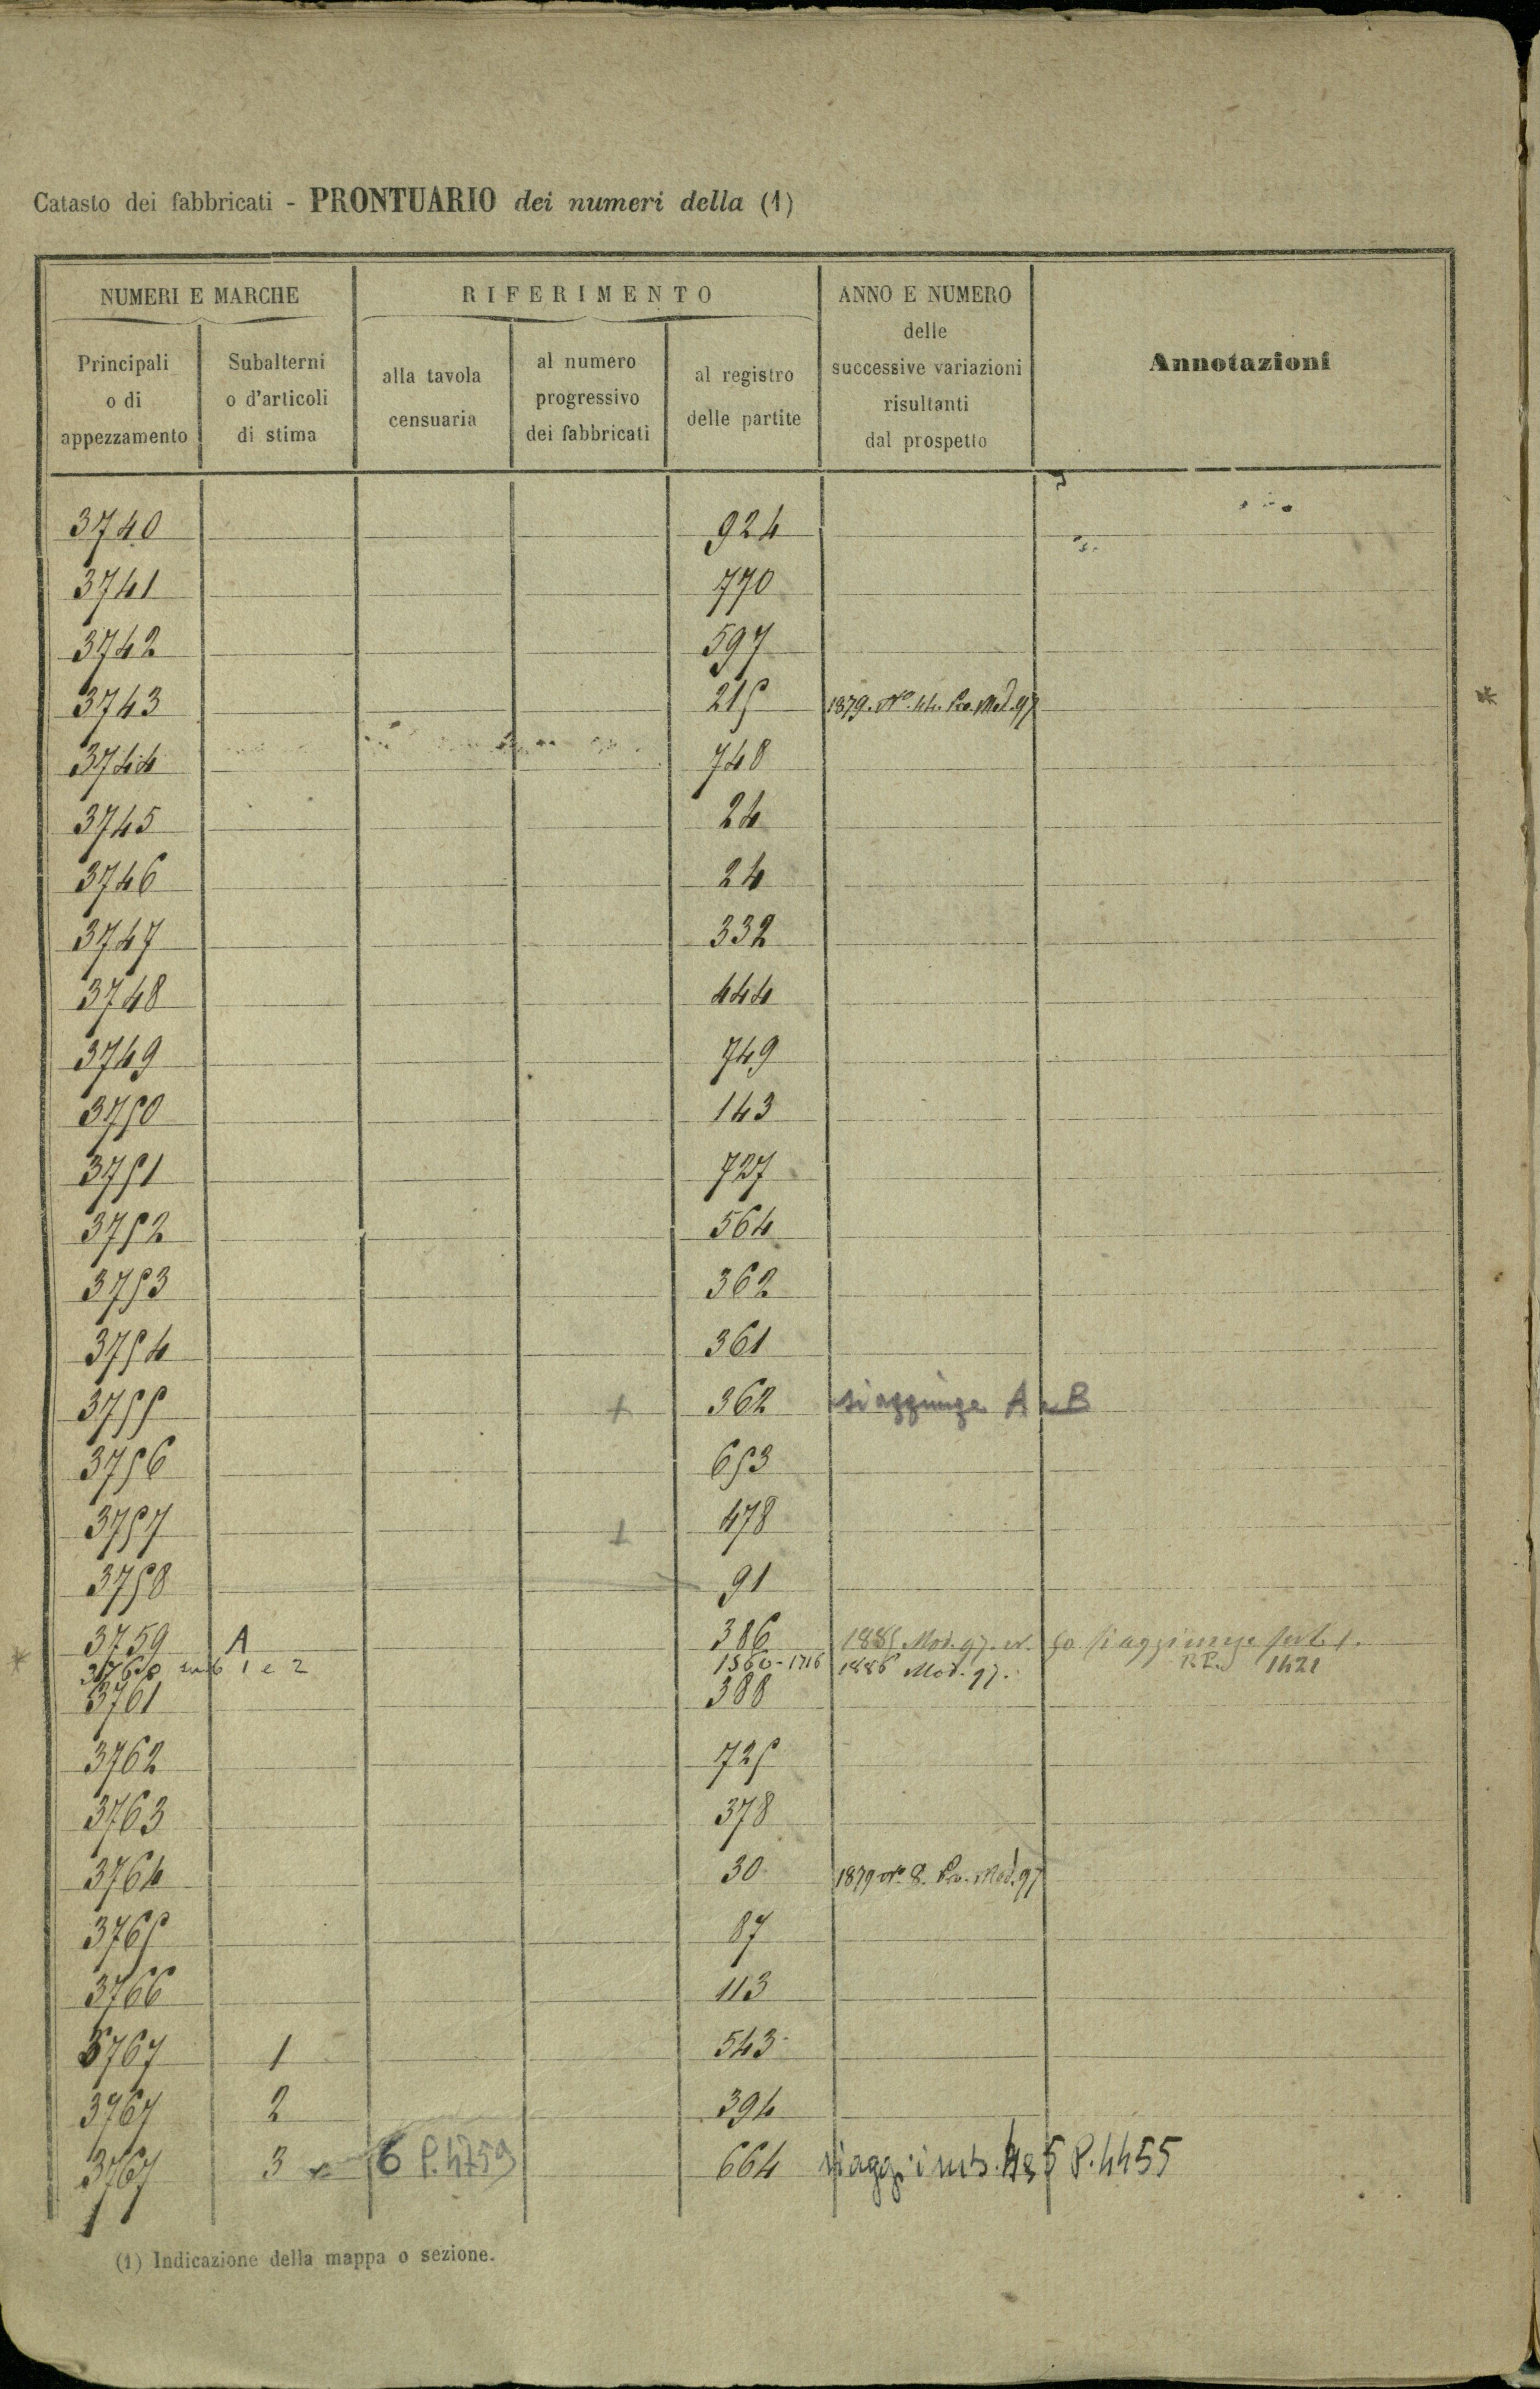 Catasto dei fabbricati - PRONTUARIO dei numeri della (1)
NUMERI E MARCHE
Principali o di appezzamento
Subalterni o d'articoli di stima
RIFERIMENTO
alla tavola censuaria
al numero progressivo dei fabbricati
al registro delle partite
ANNO E NUMERO delle successive variazioni risultanti dal prospetto
Annotazioni
3740 924
3741 770
3742 597
3743 215 1879. No. 44. Mod. 97
3744 748
3745 24
3746 24
3747 332
3748 444
3749 749
3750 143
3751 727
3752 564
3753 362
3754 361
3755 + 362 si aggiunge A e B
3756 653
3757 + 478
3758 91
3759 A 386 1885 Mod. 97. n. 50 si aggiunge sub. 1.
3760 sub 1 e 2 1560-1716 1886 Mod. 97. 1421
3761 388
3762 725
3763 378
3764 30 1879 No. 8. Mod. 97
3765 87
3766 113
3767 1 543
3767 2 394
3767 3 6 P. 4759 664 si agg. i sub. 4 e 5 P. 4455
(1) Indicazione della mappa o sezione.